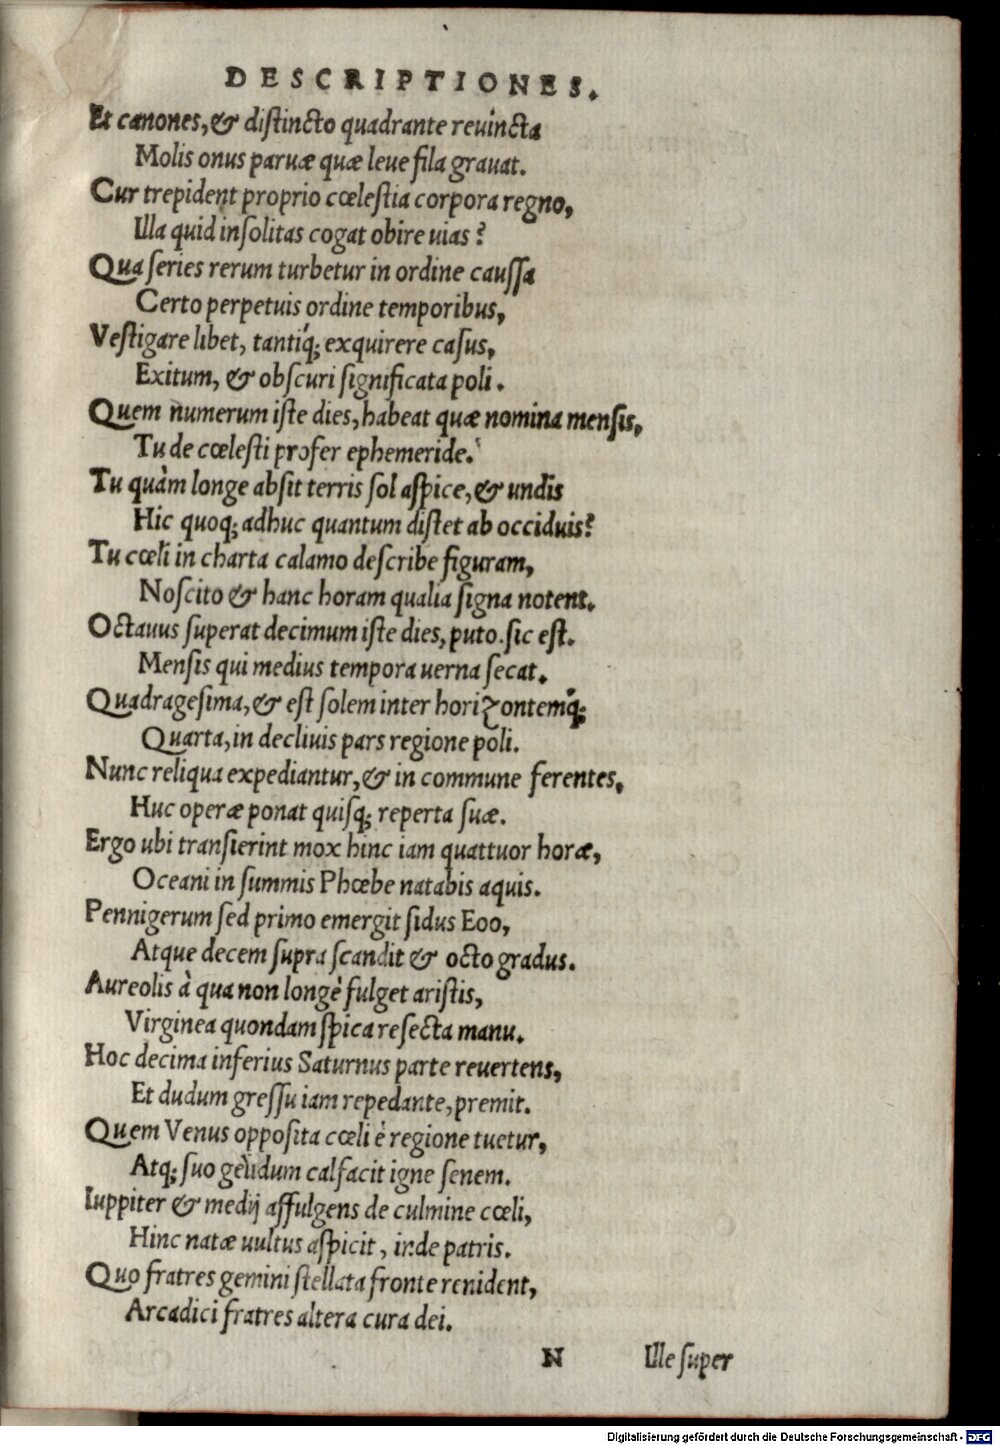 DESCRIPTIONES.
Et canones, & distincto quadrante reuincta
Molis onus paruæ quæ leue fila grauat.
Cur trepident proprio cœlestia corpora regno,
Illa quid insolitas cogat obire uias?
Qua series rerum turbetur in ordine caussa
Certo perpetuis ordine temporibus,
Vestigare libet, tantiq́; exquirere casus,
Exitum, & obscuri significata poli.
Quem numerum iste dies, habeat quæ nomina mensis,
Tu de cœlesti profer ephemeride.
Tu quàm longe absit terris sol aspice, & undis
Hic quoq; adhuc quantum distet ab occiduis?
Tu cœli in charta calamo describe figuram,
Noscito & hanc horam qualia signa notent.
Octauus superat decimum iste dies, puto. sic est.
Mensis qui medius tempora uerna secat.
Quadragesima, & est solem inter horizontemq́;
Quarta, in decliuis pars regione poli.
Nunc reliqua expediantur, & in commune ferentes,
Huc operæ ponat quisq; reperta suæ.
Ergo ubi transierint mox hinc iam quattuor horæ,
Oceani in summis Phœbe natabis aquis.
Pennigerum sed primo emergit sidus Eoo,
Atque decem supra scandit & octo gradus.
Aureolis à qua non longè fulget aristis,
Virginea quondam spica resecta manu.
Hoc decima inferius Saturnus parte reuertens,
Et dudum gressu iam repedante, premit.
Quem Venus opposita cœli è regione tuetur,
Atq; suo gelidum calfacit igne senem.
Iuppiter & medij affulgens de culmine cœli,
Hinc natæ uultus aspicit, inde patris.
Quo fratres gemini stellata fronte renident,
Arcadici fratres altera cura dei.
N Ille super
Digitalisierung gefördert durch die Deutsche Forschungsgemeinschaft - DFG